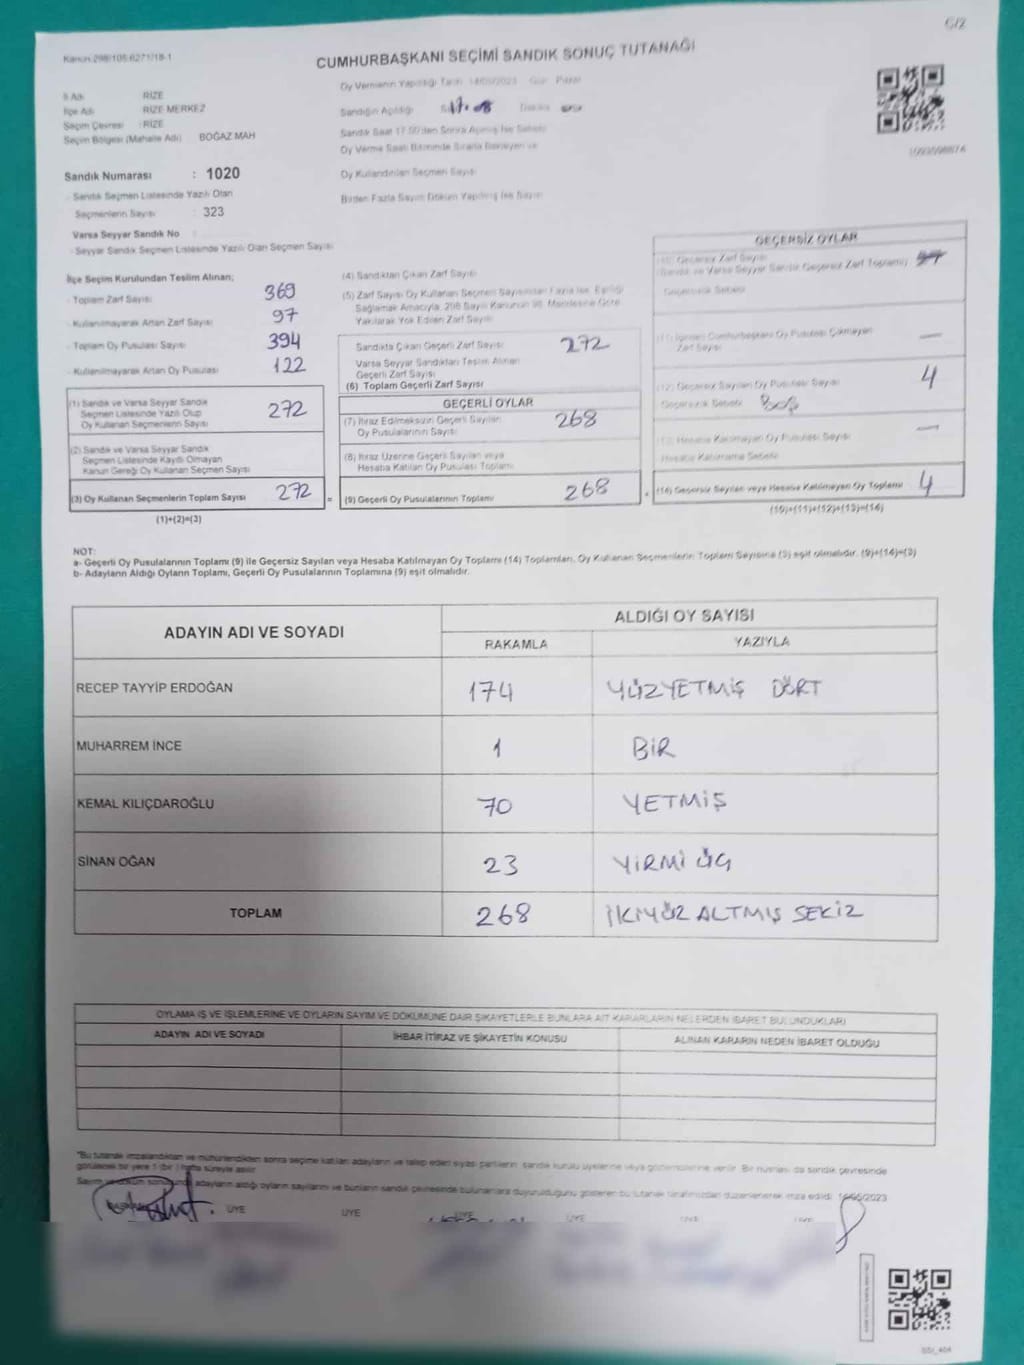 C/2
Kanun:298/105-6271/18-1
CUMHURBAŞKANI SEÇİMİ SANDIK SONUÇ TUTANAĞI
Oy Vermenin Yapıldığı Tarih 14/05/2023 Gün Pazar
İl Adı RİZE
İlçe Adı RİZE MERKEZ
Seçim Çevresi :RİZE
Seçim Bölgesi (Mahalle Adı) BOĞAZ MAH
Sandığın Açıldığı
Sandık Saat 17.00'den Sonra Açılmış İse Sebebi
Oy Verme Saati Bitiminde Sırada Bekleyen ve
Oy Kullandırılan Seçmen Sayısı
Birden Fazla Sayım Döküm Yapılmış İse Sayısı
Sandık Numarası : 1020
Sandık Seçmen Listesinde Yazılı Olan
Seçmenlerin Sayısı : 323
Varsa Seyyar Sandık No
- Seyyar Sandık Seçmen Listesinde Yazılı Olan Seçmen Sayısı
İlçe Seçim Kurulundan Teslim Alınan;
- Toplam Zarf Sayısı 369
- Kullanılmayarak Artan Zarf Sayısı 97
- Toplam Oy Pusulası Sayısı 394
- Kullanılmayarak Artan Oy Pusulası 122
(1) Sandık ve Varsa Seyyar Sandık
Seçmen Listesinde Yazılı Olup
Oy Kullanan Seçmenlerin Sayısı 272
(2) Sandık ve Varsa Seyyar Sandık
Seçmen Listesinde Kayıtlı Olmayan
Kanun Gereği Oy Kullanan Seçmen Sayısı
(3) Oy Kullanan Seçmenlerin Toplam Sayısı 272 =
(1)+(2)=(3)
(4) Sandıktan Çıkan Zarf Sayısı
(5) Zarf Sayısı Oy Kullanan Seçmen Sayısından Fazla İse, Eşitliği
Sağlamak Amacıyla, 298 Sayılı Kanunun 98. Maddesine Göre
Yakılarak Yok Edilen Zarf Sayısı
Sandıkta Çıkan Geçerli Zarf Sayısı 272
Varsa Seyyar Sandıktan Teslim Alınan
Geçerli Zarf Sayısı
(6) Toplam Geçerli Zarf Sayısı
GEÇERLİ OYLAR
(7) İtiraz Edilmeksizin Geçerli Sayılan
Oy Pusulalarının Sayısı 268
(8) İtiraz Üzerine Geçerli Sayılan veya
Hesaba Katılan Oy Pusulası Toplamı
(9) Geçerli Oy Pusulalarının Toplamı 268 +
GEÇERSİZ OYLAR
(10) Geçersiz Zarf Sayısı
(Sandık ve Varsa Seyyar Sandık Geçersiz Zarf Toplamı)
Geçersizlik Sebebi
(11) İçinden Cumhurbaşkanı Oy Pusulası Çıkmayan
Zarf Sayısı —
(12) Geçersiz Sayılan Oy Pusulası Sayısı 4
Geçersizlik Sebebi Boş
(13) Hesaba Katılmayan Oy Pusulası Sayısı —
Hesaba Katılmama Sebebi
(14) Geçersiz Sayılan veya Hesaba Katılmayan Oy Toplamı 4
(10)+(11)+(12)+(13)=(14)
NOT:
a- Geçerli Oy Pusulalarının Toplamı (9) ile Geçersiz Sayılan veya Hesaba Katılmayan Oy Toplamı (14) Toplamları, Oy Kullanan Seçmenlerin Toplam Sayısına (3) eşit olmalıdır. (9)+(14)=(3)
b- Adayların Aldığı Oyların Toplamı, Geçerli Oy Pusulalarının Toplamına (9) eşit olmalıdır.
ADAYIN ADI VE SOYADI ALDIĞI OY SAYISI
RAKAMLA YAZIYLA
RECEP TAYYİP ERDOĞAN 174 YÜZYETMİŞ DÖRT
MUHARREM İNCE 1 BİR
KEMAL KILIÇDAROĞLU 70 YETMİŞ
SİNAN OĞAN 23 YİRMİ ÜÇ
TOPLAM 268 İKİYÜZ ALTMIŞ SEKİZ
OYLAMA İŞ VE İŞLEMLERİNE VE OYLARIN SAYIM VE DÖKÜMÜNE DAİR ŞİKAYETLERLE BUNLARA AİT KARARLARIN NELERDEN İBARET BULUNDUKLARI
ADAYIN ADI VE SOYADI İHBAR İTİRAZ VE ŞİKAYETİN KONUSU ALINAN KARARIN NEDEN İBARET OLDUĞU
"Bu tutanak imzalandıktan ve mühürlendikten sonra seçime katılan adayların ve talep eden siyasi partilerin sandık kurulu üyelerine veya gözlemcilerine verilir. Bir nüshası da sandık çevresinde
görülecek bir yere 1 (bir ) hafta süreyle asılır.
Sayım ve döküm sonucunda adayların aldığı oyların sayılarını ve bunların sandık çevresinde bulunanlara duyurulduğunu gösteren bu tutanak tarafımızdan düzenlenerek imza edildi. 14/05/2023
ÜYE ÜYE ÜYE ÜYE ÜYE ÜYE